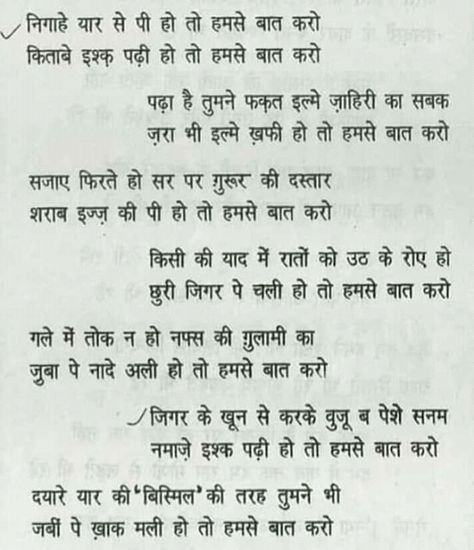 निगाहे यार से पी हो तो हमसे बात करो
किताबे इश्क़ पढ़ी हो तो हमसे बात करो
पढ़ा है तुमने फक़त इल्मे ज़ाहिरी का सबक
ज़रा भी इल्मे ख़फी हो तो हमसे बात करो
सजाए फिरते हो सर पर ग़ुरूर की दस्तार
शराब इज्ज़ की पी हो तो हमसे बात करो
किसी की याद में रातों को उठ के रोए हो
छुरी जिगर पे चली हो तो हमसे बात करो
गले में तोक न हो नफ्स की ग़ुलामी का
ज़ुबा पे नादे अली हो तो हमसे बात करो
जिगर के खून से करके वुजू ब पेशे सनम
नमाज़े इश्क पढ़ी हो तो हमसे बात करो
दयारे यार की 'बिस्मिल' की तरह तुमने भी
जबीं पे ख़ाक मली हो तो हमसे बात करो